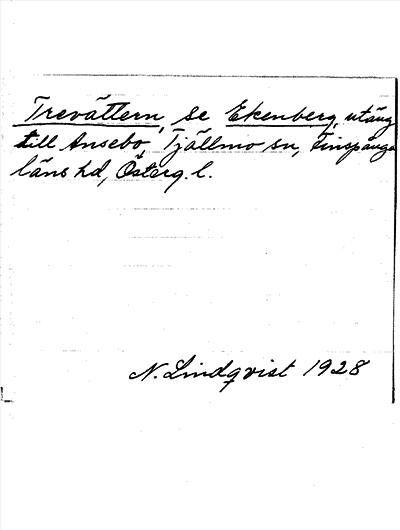 Trevättern, se Ekenberg, utäng
till Ansebo, Tjällmo sn, Finspånga
läns hd, Österg. l.
N. Lindqvist 1928